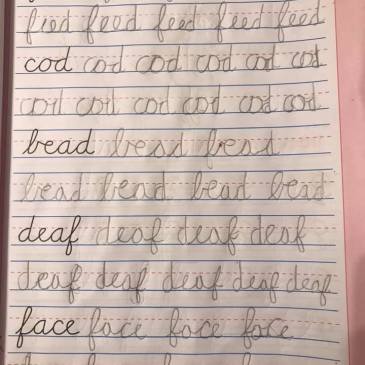 feed feed feed feed feed
cod cod cod cod cod cod
cod cod cod cod cod cod
bead bead bead
bead bead bead bead
deaf deaf deaf deaf
deaf deaf deaf deaf deaf
face face face face